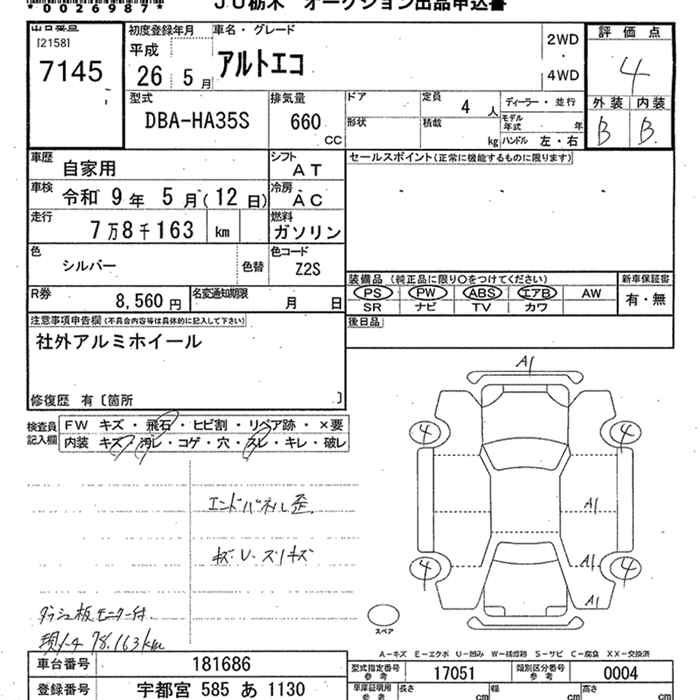 *0026987*
JU栃木 オークション出品申込書
出品番号
[2158]
7145
初度登録年月
平成
26 5月
車名・グレード
アルトエコ
2WD
4WD
評価点
4
外装 内装
B B
型式
DBA-HA35S
排気量
660
CC
ドア
形状
定員 4 人
積載 kg
ディーラー・並行
モデル年式 年
ハンドル 左・右
車歴
自家用
シフト
AT
車検
令和 9年 5月(12日)
冷房
AC
走行
7万8千163 km
燃料
ガソリン
色
シルバー
色替
色コード
Z2S
R券
8,560円
名変通知期限 月 日
セールスポイント(正常に機能するものに限ります)
装備品 (純正品に限り○をつけてください)
PS PW ABS エアB AW
SR ナビ TV カワ
新車保証書
有・無
後日品
注意事項申告欄(不具合内容等は具体的に記入して下さい)
社外アルミホイール
修復歴 有〔箇所 〕
検査員記入欄
FW キズ・飛石・ヒビ割・リペア跡・×要
内装 キズ・汚レ・コゲ・穴・スレ・キレ・破レ
エンドパネル歪
キズ・U・スリキズ
ダッシュ板モニター付
現メーター 78,163km
A1
4 4
A1
A1
4 4
A1
スペア
A-キズ E-エクボ U-凹み W-補修跡 S-サビ C-腐食 XX-交換済
車台番号 181686
登録番号 宇都宮 585 あ 1130
型式指定番号 参考 17051
類別区分番号 参考 0004
車庫証明用 参考 長さ cm 幅 cm 高さ cm